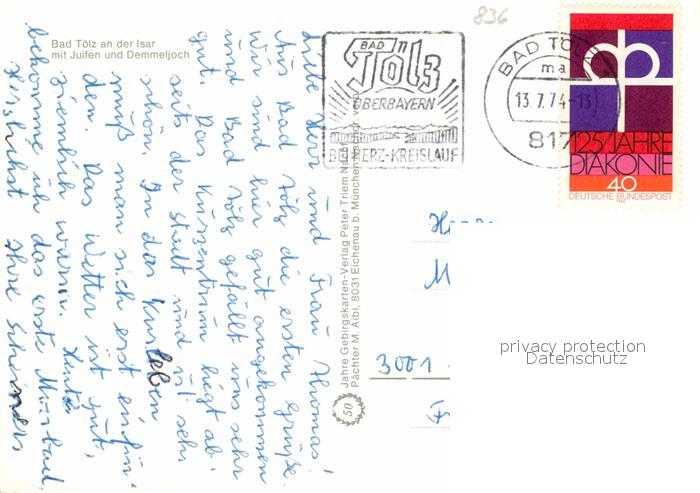 836
Bad Tölz an der Isar
mit Juifen und Demmeljoch
BAD
Tölz
OBERBAYERN
BEI HERZ-KREISLAUF
BAD TÖLZ
ma
13.7.74-13
817
125 JAHRE
DIAKONIE
40
DEUTSCHE BUNDESPOST
Liebe Herr und Frau Thomas!
Aus Bad Tölz die ersten Grüße.
Wir sind hier gut angekommen
und Bad Tölz gefällt uns sehr
gut. Das Kurzentrum liegt ab-
seits der Stadt und ist sehr
schön. In das Kurleben
muß man sich erst einfin-
den. Das Wetter ist gut,
ziemlich warm. Heute
bekomme ich das erste Moorbad.
Herzlichst Ihre Schönders
Jahre Gebirgskarten-Verlag Peter Triem Nachf.
Pächter M. Aibl, 8031 Eichenau b. München
50
M
3001
privacy protection
Datenschutz